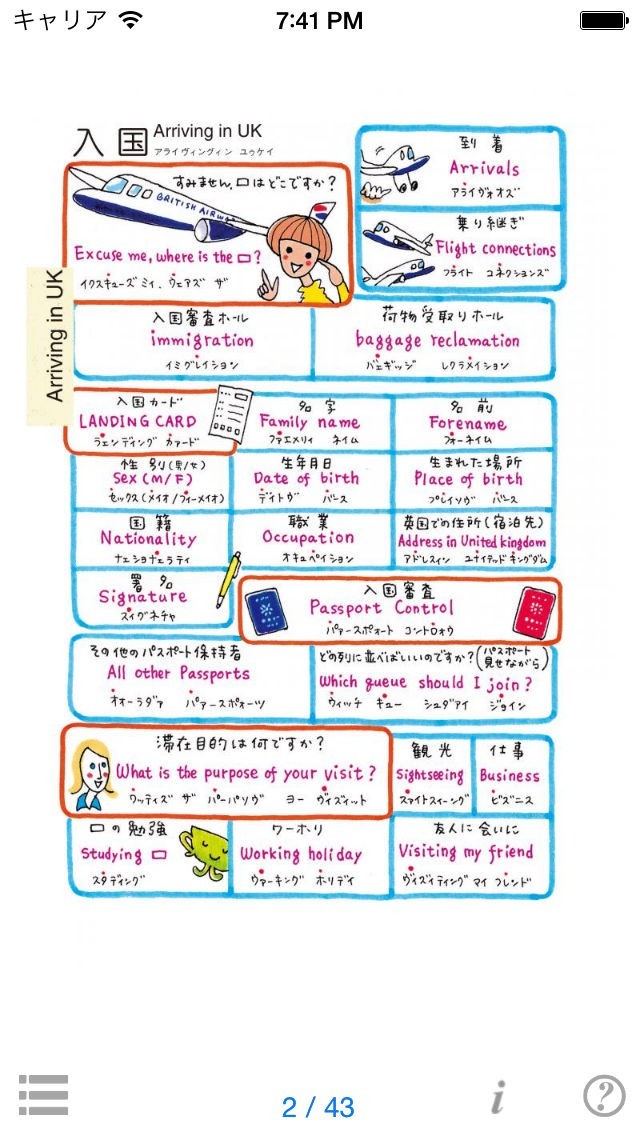 キャリア 7:41 PM
入国 Arriving in UK
アライヴィングィン ユゥケイ
すみません,□はどこですか?
BRITISH AIRW
Excuse me, where is the □?
イクスキューズ ミィ, ウェアズ ザ
到着
Arrivals
アライヴォオズ
乗り継ぎ
Flight connections
フライト コネクションズ
Arriving in UK
入国審査ホール
immigration
イミグレイション
荷物受取りホール
baggage reclamation
バェギッジ レクラメイション
入国カード
LANDING CARD
ラェンディング カァード
名字
Family name
ファエメリィ ネイム
名前
Forename
フォーネイム
性別(男/女)
Sex (M/F)
セックス(メイオ/フィーメイオ)
生年月日
Date of birth
デイトヴ バース
生まれた場所
Place of birth
プレイソヴ バース
国籍
Nationality
ナェショナェラティ
職業
Occupation
オキュペイション
英国での住所(宿泊先)
Address in United kingdom
アドレスィン ユナイテッドキングダム
署名
Signature
スィグネチャ
入国審査
Passport Control
パァースポォート コントロォウ
その他のパスポート保持者
All other Passports
オオーラダァ パァースポォーツ
どの列に並べばいいのですか?(パスポート見せながら)
Which queue should I join?
ウィッチ キュー シュダアイ ジョイン
滞在目的は何ですか?
What is the purpose of your visit?
ワッティズ ザ パーパソヴ ヨー ヴィズィット
観光
Sightseeing
スァイトスィーング
仕事
Business
ビズニス
□の勉強
Studying □
スタディング
ワーホリ
Working holiday
ウァーキング ホリデイ
友人に会いに
Visiting my friend
ヴィズィティング マイ フレンド
2 / 43
i
?